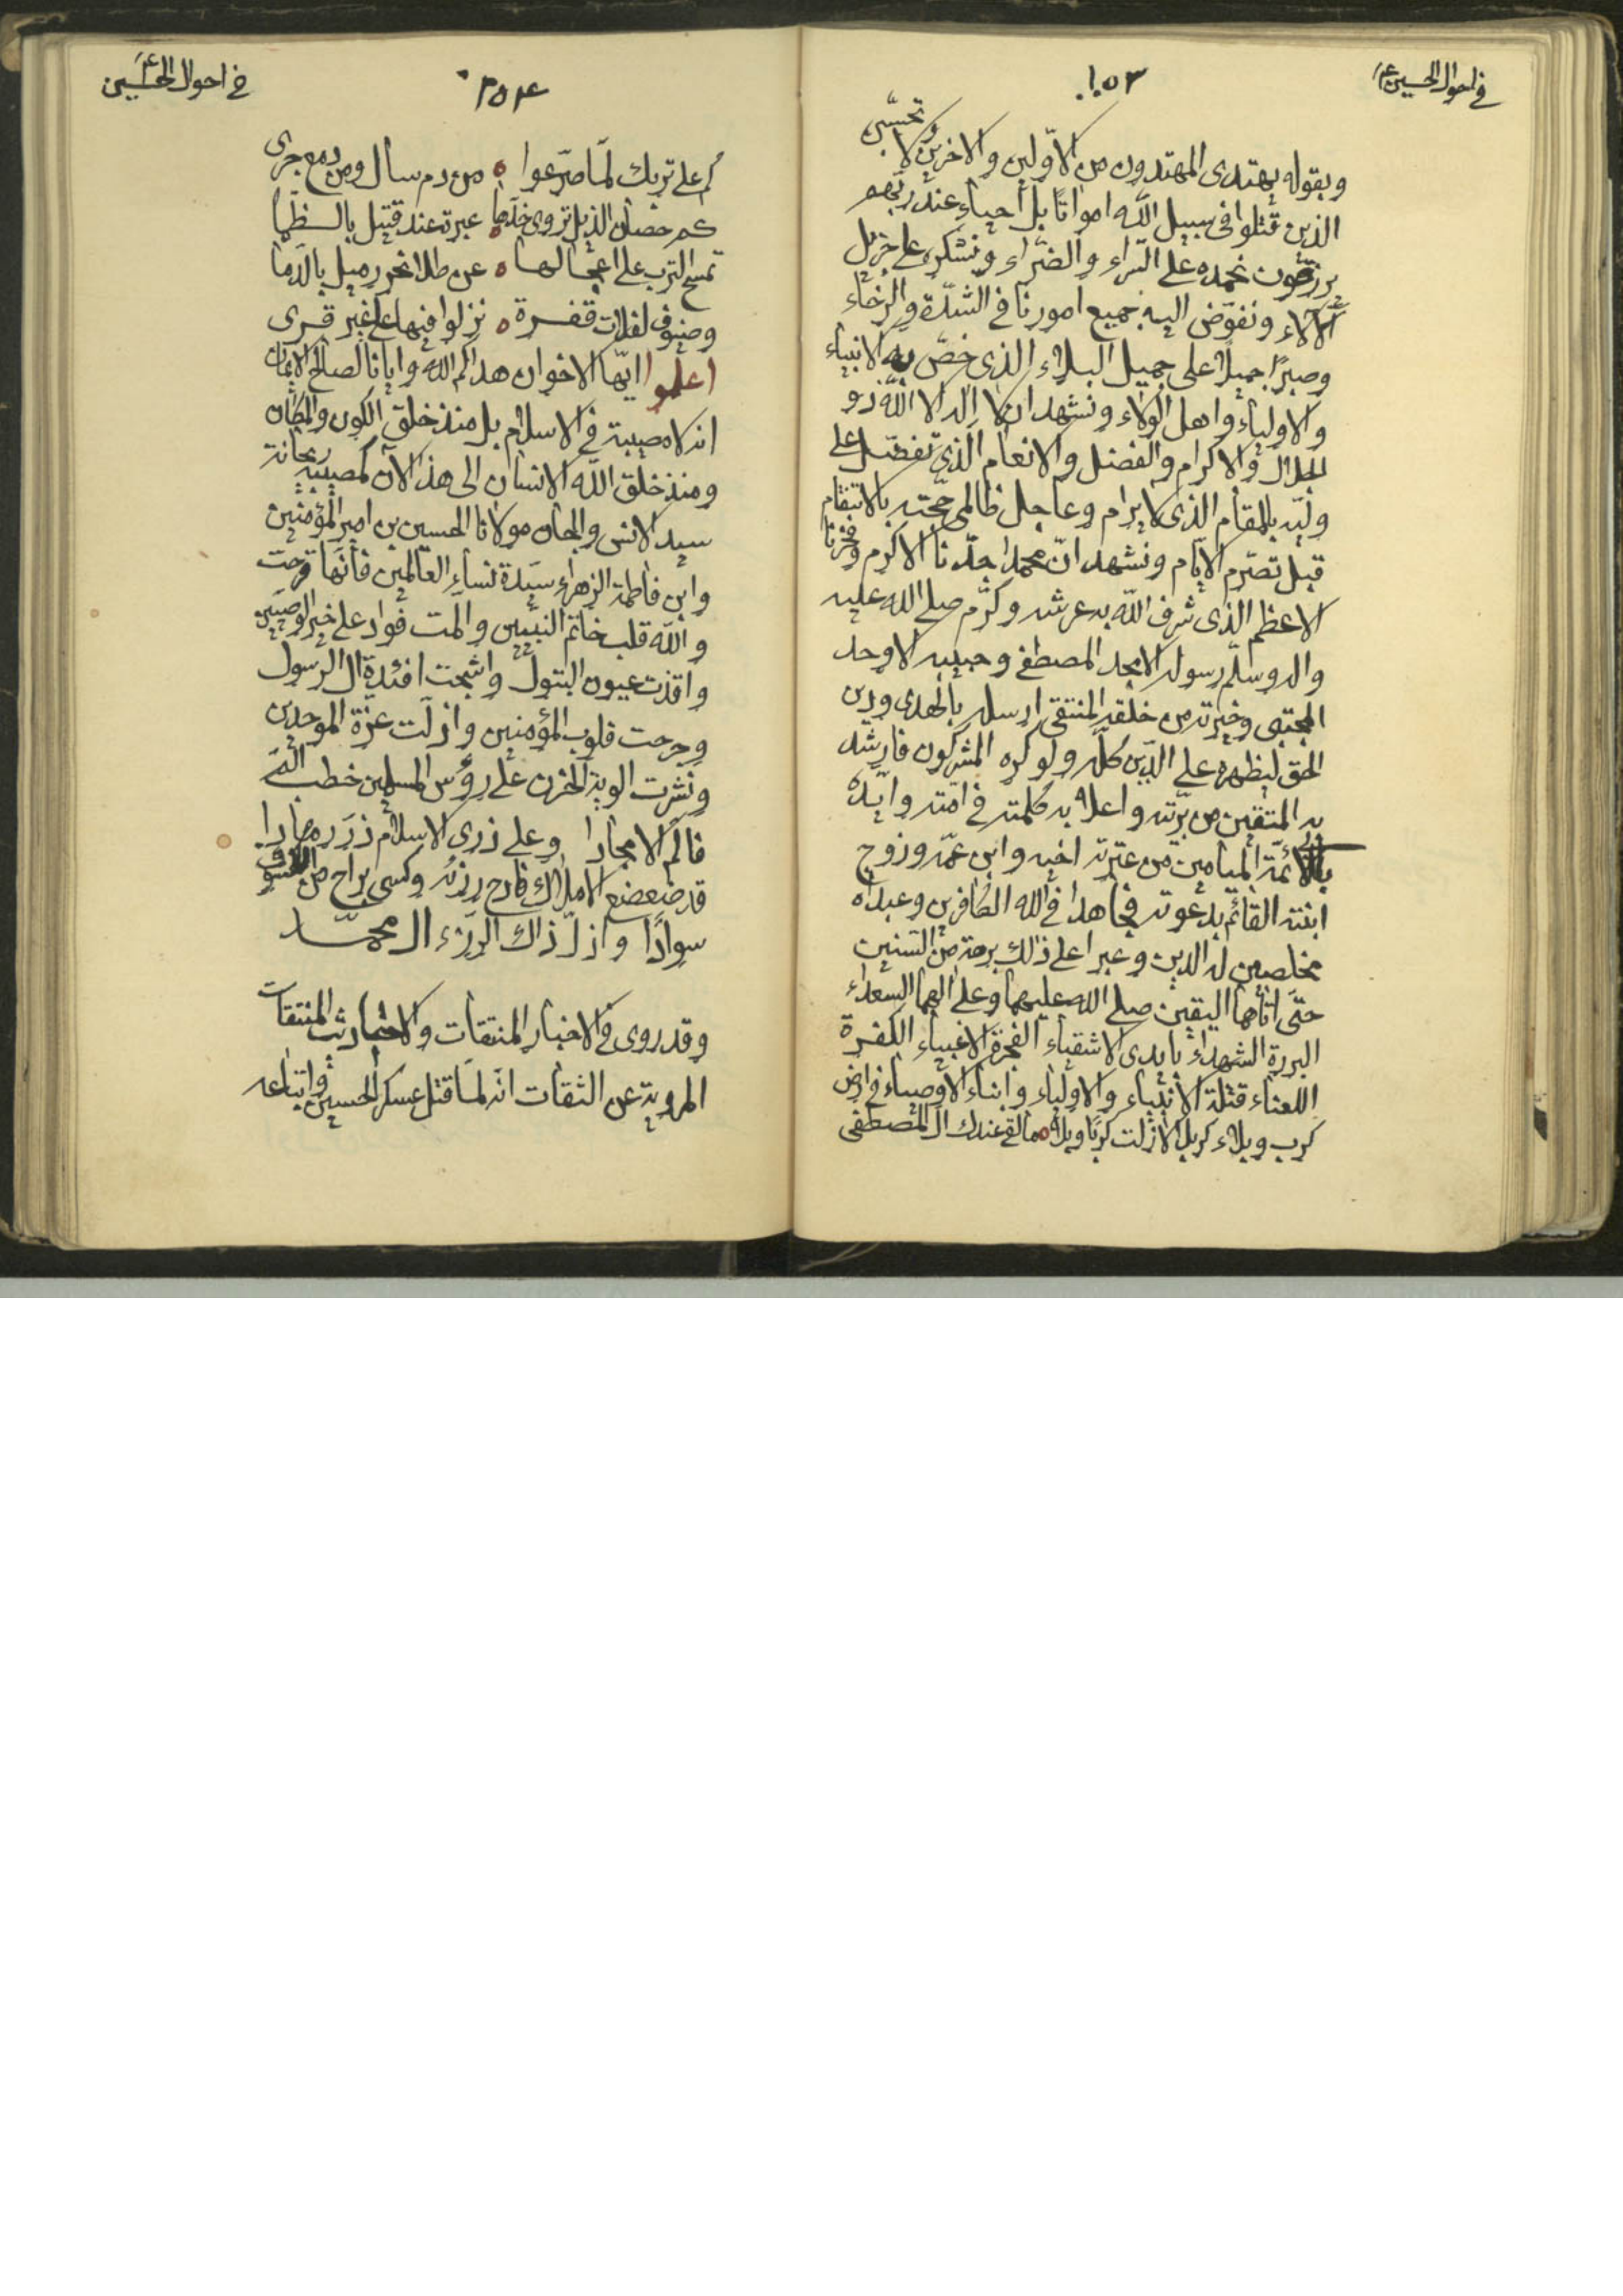 في احوال الحسين ع
١٥٣
وبقوله يهتدى المهتدون من الاوّلين والاخرين ولا تحسبن
الذين قتلوا فى سبيل الله امواتًا بل أحياء عند ربّهم
يرزقون نحمده على السّراء والضرّاء ونشكره على جزيل
الآلاء ونفوّض اليه جميع امورنا فى الشدّة والرخاء
وصبرًا جميلًا على جميل البلاء الذى خصّ به الانبياء
والاولياء واهل الولاء ونشهد ان لا اله الا اللّه ذو
الجلال والاكرام والفضل والانعام الذى تفضّل على
وليّه بالمقام الذى لا يرام وعاجل ظالمى حجّته بالانتقام
قبل تصرّم الايّام ونشهد انّ محمدا جدّنا الاكرم وفخرنا
الاعظم الذى شرف اللّه به عرشه وكرّم صلى الله عليه
واله وسلم رسوله الامجد المصطفى وحبيبه الاوحد
المجتبى وخيرته من خلقه المنتقى ارسله بالهدى ودين
الحق ليظهره على الدّين كلّه ولو كره المشركون فارشد
به المتقين من بريّته واعلا به كلمته فى امّته وايّده
بالائمّة الميامين من عترته اخيه وابن عمّه وزوج
ابنته القائم بدعوته فجاهدا فى الله الكافرين وعبداه
مخلصين له الدين وعبرا على ذلك برهة من السّنين
حتّى اتاهما اليقين صلى الله عليهما وعلى الهما السعداء
البررة الشهداء بايدى الاشقياء الفجرة الاغبياء الكفرة
اللعناء قتلة الانبياء والاولياء وابناء الاوصياء فى ارض
كرب وبلاء كربلا لازلت كربًا وبلا ما لقى عندك ال المصطفى
في احوال الحسين ع
٣٥٤
كم على تربك لمّا صرّعوا من دم سال ومن دمع جرى
كم حصان الذيل تروى خدّها عبرة عند قتيل بالظما
تمسح الترب على اعجالها عن طلا نحر رميل بالدما
وضيوف لفلات قفرة نزلوا فيها على غير قرى
اعلموا ايّها الاخوان هداكم الله وايانا لصالح الايمان
انه لا مصيبة فى الاسلام بل منذ خلق الكون والمكان
ومنذ خلق اللّه الانسان الى هذ الآن كمصيبة ريحانة
سيد الانس والجان مولانا الحسين بن امير المؤمنين
وابن فاطمة الزهراء سيّدة نساء العالمين فانّها قرحت
واللّه قلب خاتم النبيّين والمت فواد على خير الوصيّين
واقذت عيون البتول واشجت افئدة ال الرسول
وجرحت قلوب المؤمنين واذلّت عزّة الموحدين
ونشرت الوية الحزن على رؤس المسلمين خطب المّ
فالم الامجادا وعلى ذرى الاسلام زرّ
قد ضعضع الاملاك فادح رزئه وكسى براح من
سوادًا واذلّ ذاك الرزء ال محمّد
وقد روى فى الاخبار المنتقات والاحاديث المنتقات
المروية عن الثقات انّه لمّا قتل عسكر الحسين واتباعه